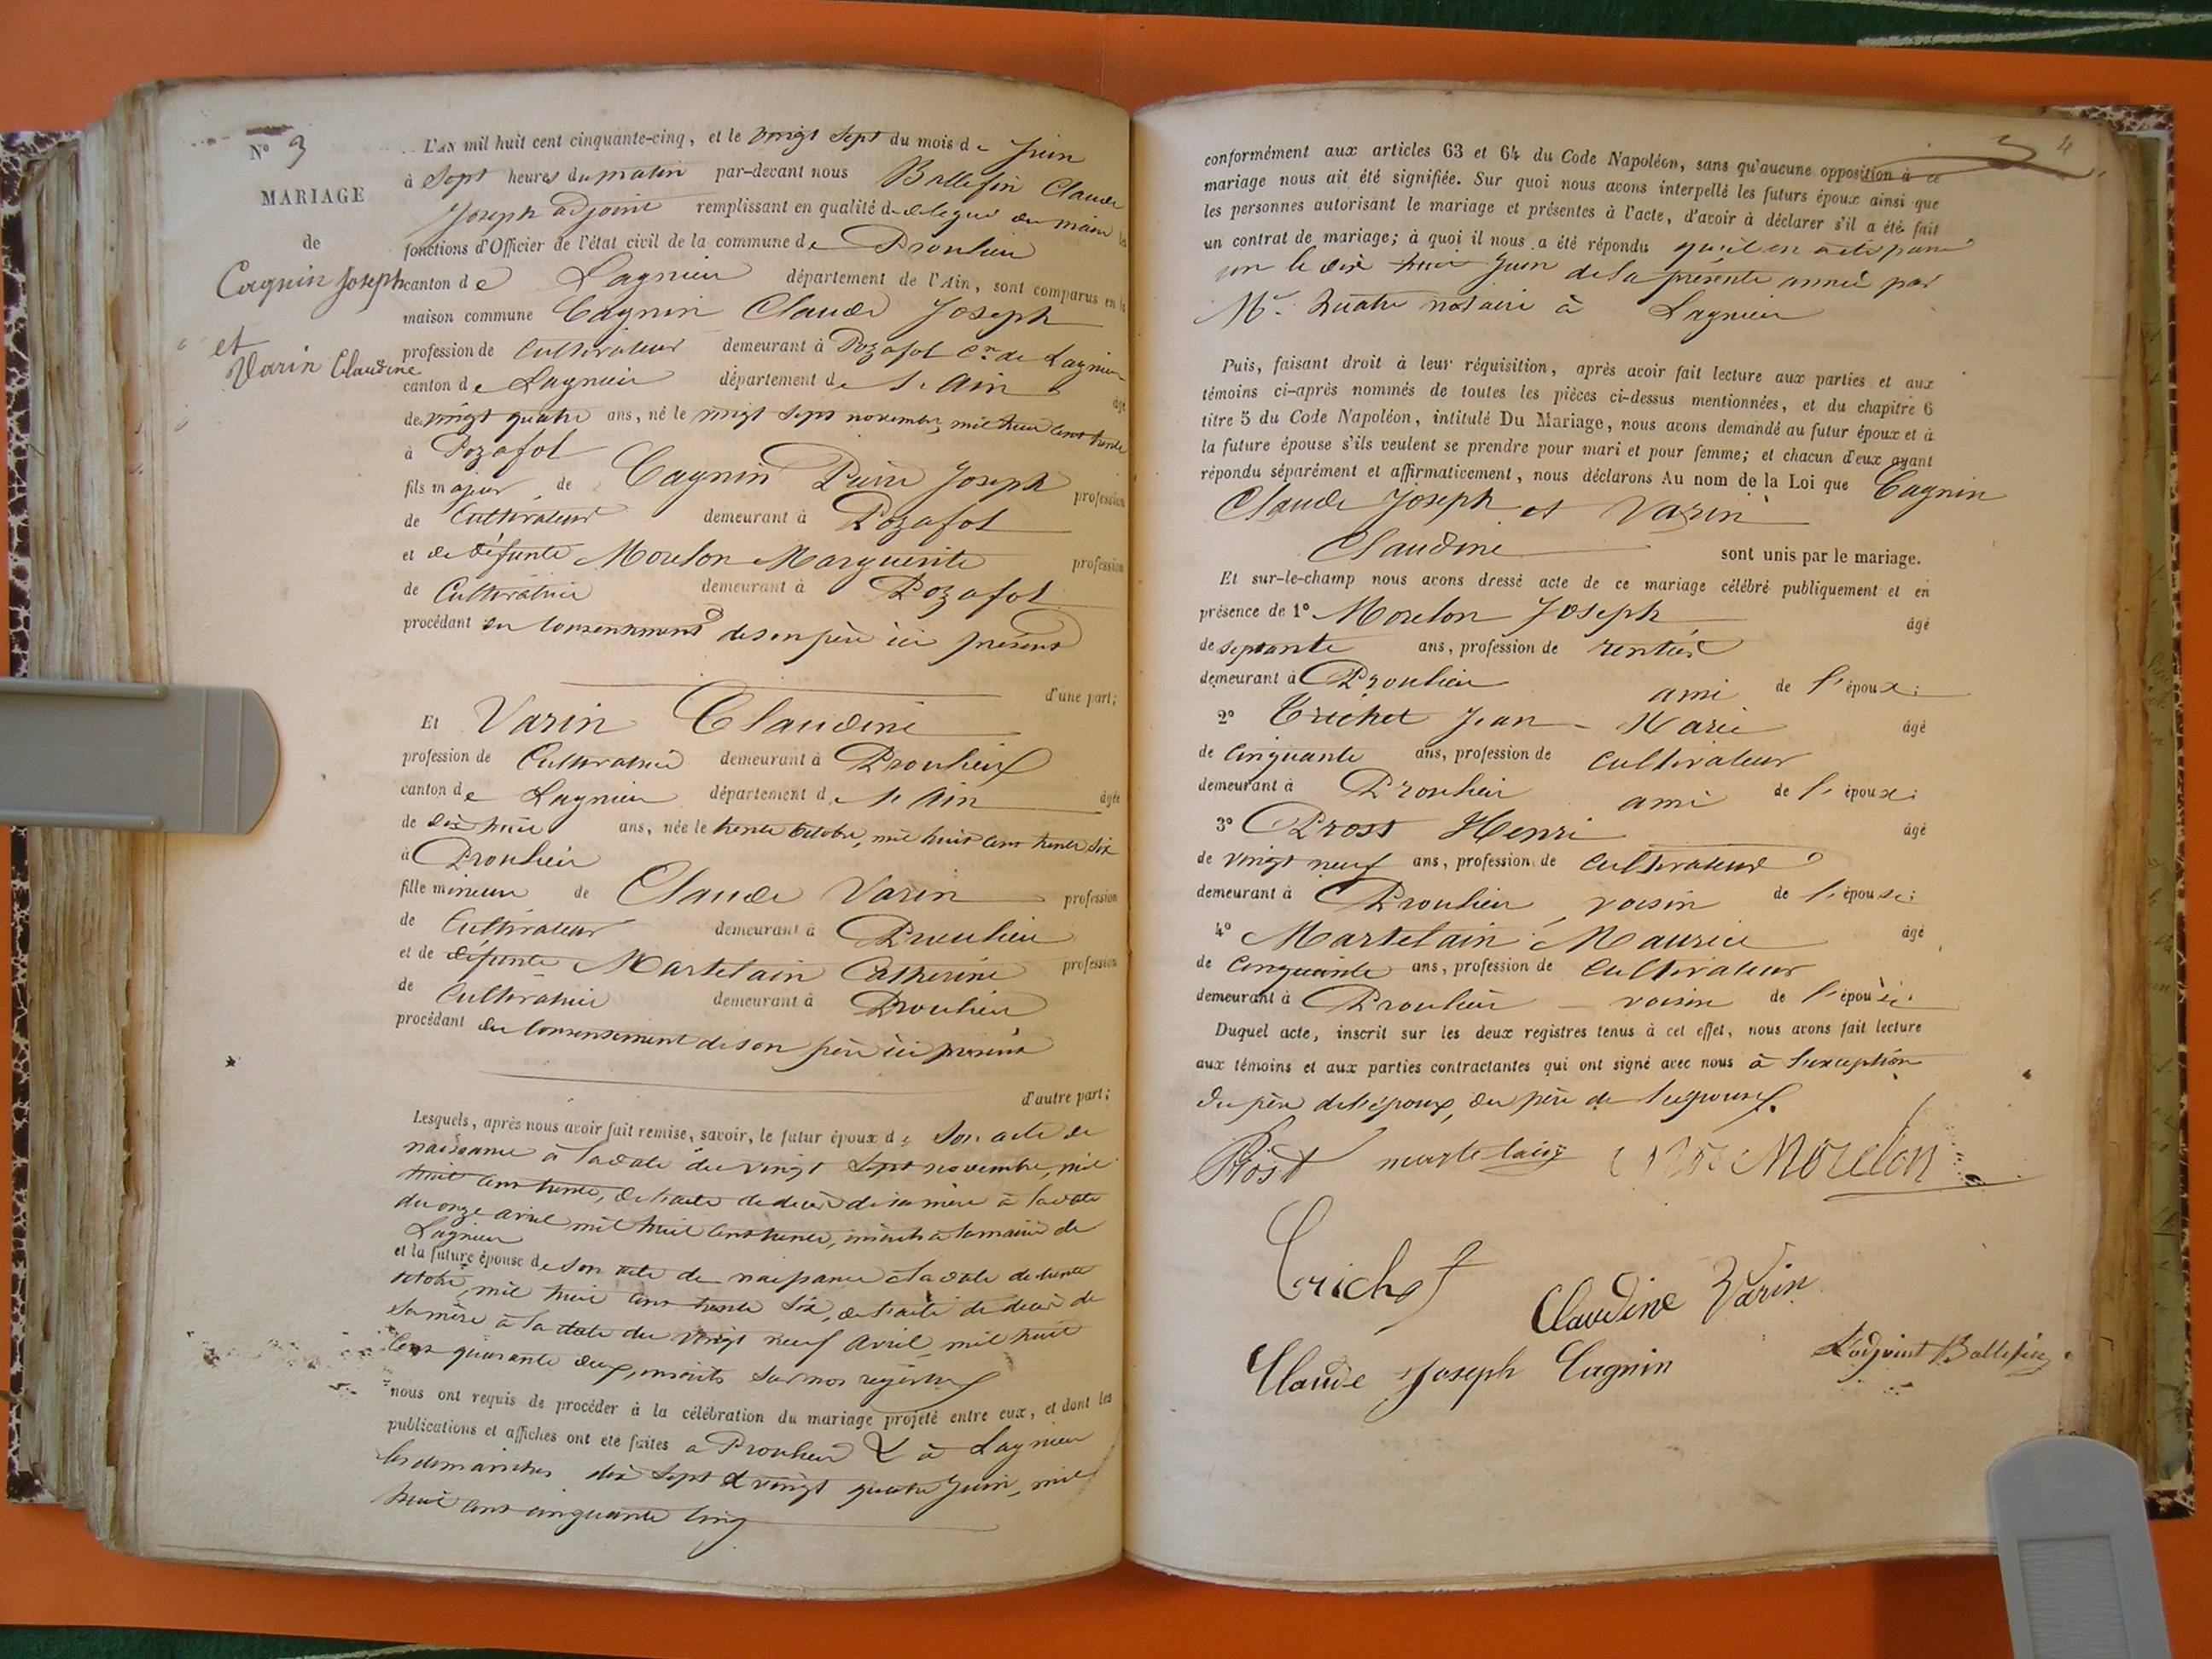 N° 3
MARIAGE
de
Cagnin Joseph
et
Varin Claudine
L'AN mil huit cent cinquante-cinq, et le vingt sept du mois de Juin
à Sept heures du matin par-devant nous Ballefin Claude
Joseph adjoint remplissant en qualité de délégué du maire les
fonctions d'Officier de l'état civil de la commune de Proulieu
canton de Lagnieu département de l'Ain, sont comparus en la
maison commune Cagnin Claude Joseph
profession de Cultivateur demeurant à Pozafol Cne de Lagnieu
canton de Lagnieu département de l'Ain âgé
de vingt quatre ans, né le vingt Sept novembre, mil huit cent trente
à Pozafol
fils majeur de Cagnin Pierre Joseph profession
de Cultivateur demeurant à Pozafol
et de défunte Morelon Marguerite profession
de Cultivatrice demeurant à Pozafol
procédant du Consentement de son père ici présent
d'une part;
Et Varin Claudine
profession de Cultivatrice demeurant à Proulieu
canton de Lagnieu département de l'Ain âgée
de dix huit ans, née le trente octobre, mil huit cent trente six
à Proulieu
fille mineure de Claude Varin profession
de Cultivateur demeurant à Proulieu
et de défunte Martelain Catherine profession
de Cultivatrice demeurant à Proulieu
procédant du Consentement de son père ici présent
d'autre part;
Lesquels, après nous avoir fait remise, savoir, le futur époux de Son acte de
naissance à la date du vingt Sept novembre, mil
huit cent trente, de l'acte de décès de sa mère à la date
du onze avril mil huit cent trente, inscrits à la mairie de
Lagnieu
et la future épouse de Son acte de naissance à la date de trente
octobre, mil huit cent trente Six, de l'acte de décès de
sa mère à la date du vingt neuf avril, mil huit
Cent quarante deux, inscrits sur nos registres
nous ont requis de procéder à la célébration du mariage projeté entre eux, et dont les
publications et affiches ont été faites à Proulieu & à Lagnieu
les dimanches dix Sept & vingt quatre Juin, mil
huit cent cinquante Cinq
4
conformément aux articles 63 et 64 du Code Napoléon, sans qu'aucune opposition à ce
mariage nous ait été signifiée. Sur quoi nous avons interpellé les futurs époux ainsi que
les personnes autorisant le mariage et présentes à l'acte, d'avoir à déclarer s'il a été fait
un contrat de mariage; à quoi il nous a été répondu qu'il en a été passé
un le dix huit Juin de la présente année par
Me. Quatre notaire à Lagnieu
Puis, faisant droit à leur réquisition, après avoir fait lecture aux parties et aux
témoins ci-après nommés de toutes les pièces ci-dessus mentionnées, et du chapitre 6
titre 5 du Code Napoléon, intitulé Du Mariage, nous avons demandé au futur époux et à
la future épouse s'ils veulent se prendre pour mari et pour femme; et chacun d'eux ayant
répondu séparément et affirmativement, nous déclarons Au nom de la Loi que Cagnin
Claude Joseph et Varin
Claudine sont unis par le mariage.
Et sur-le-champ nous avons dressé acte de ce mariage célébré publiquement et en
présence de 1° Morelon Joseph âgé
de septante ans, profession de rentier
demeurant à Proulieu ami de l'époux;
2° Trichet Jean-Marie âgé
de Cinquante ans, profession de Cultivateur
demeurant à Proulieu ami de l'époux;
3° Prost Henri âgé
de vingt neuf ans, profession de Cultivateur
demeurant à Proulieu voisin de l'épouse;
4° Martelain Maurice âgé
de Cinquante ans, profession de Cultivateur
demeurant à Proulieu voisin de l'épouse.
Duquel acte, inscrit sur les deux registres tenus à cet effet, nous avons fait lecture
aux témoins et aux parties contractantes qui ont signé avec nous à l'exception
du père de l'époux, du père de l'épouse.
Prost martelain Morelon
Trichet
Claudine Varin
Claude Joseph Cagnin L'adjoint Ballefin